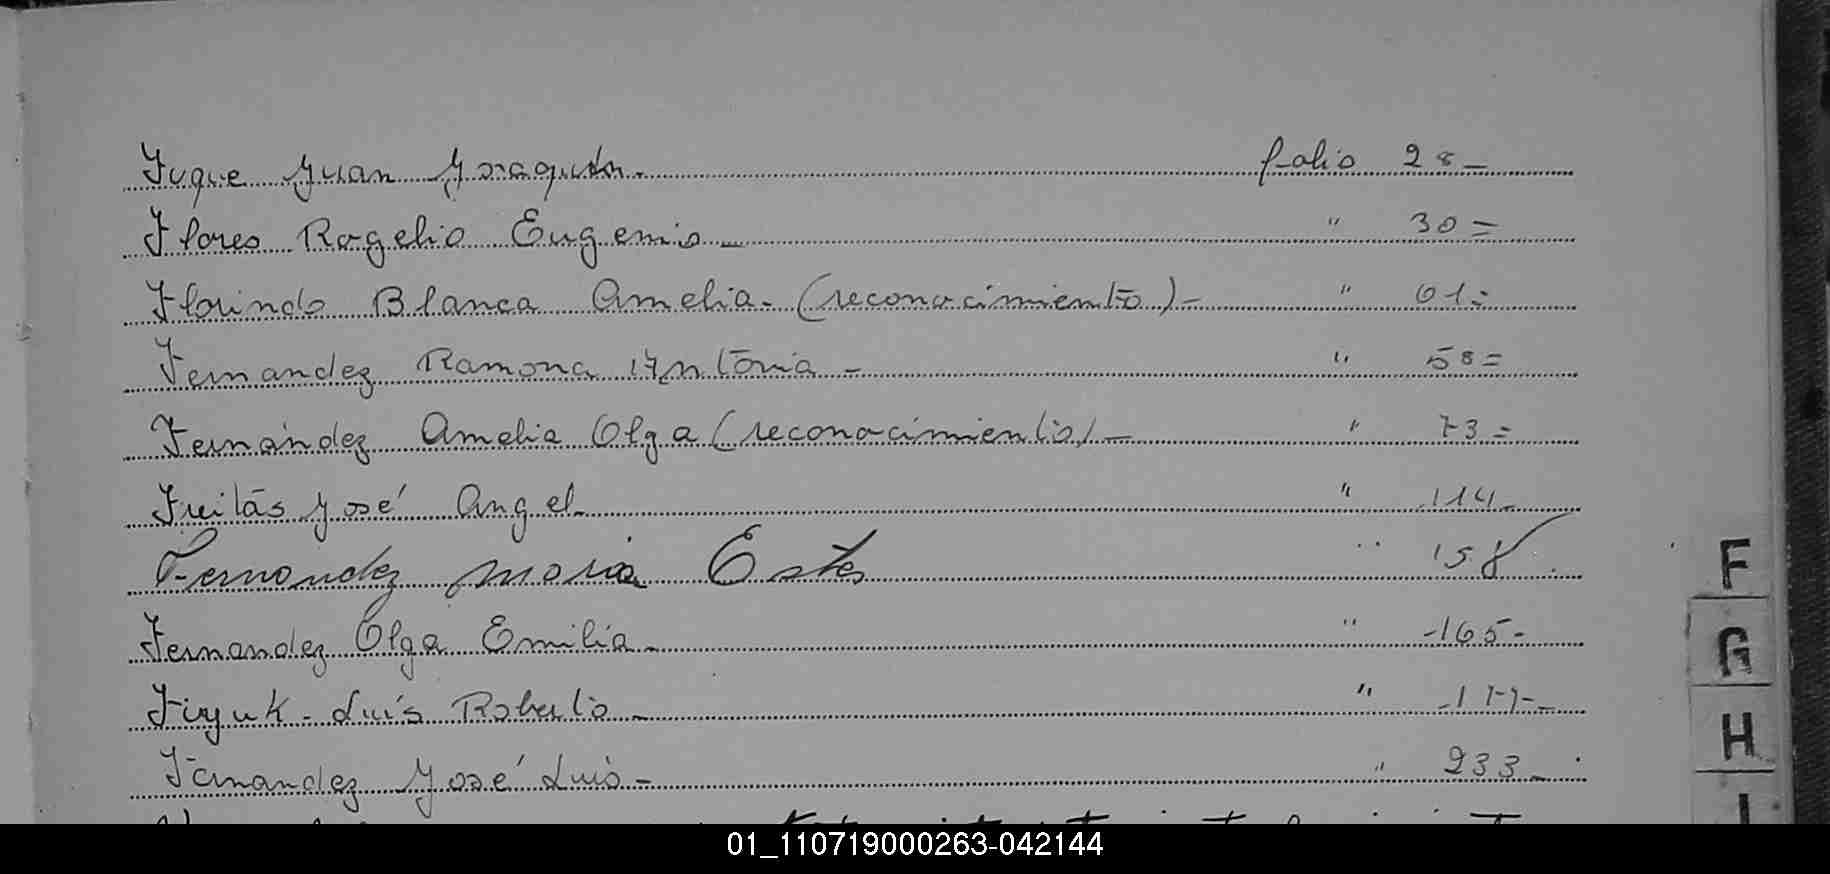 Fuque Juan Joaquín. folio 28 -
Flores Rogelio Eugenio - " 30 =
Florindo Blanca Amelia - (reconocimiento) - " 61 =
Fernandez Ramona Antonia - " 58 =
Fernández Amelia Olga (reconocimiento) - " 73 =
Freitas José Angel - " 114 -
Fernandez Maria Ester " 158
Fernandez Olga Emilia - " -165-
Luis Roberto - "
Fernandez José Luis - " 233 -
F
G
H
I
01_110719000263-042144